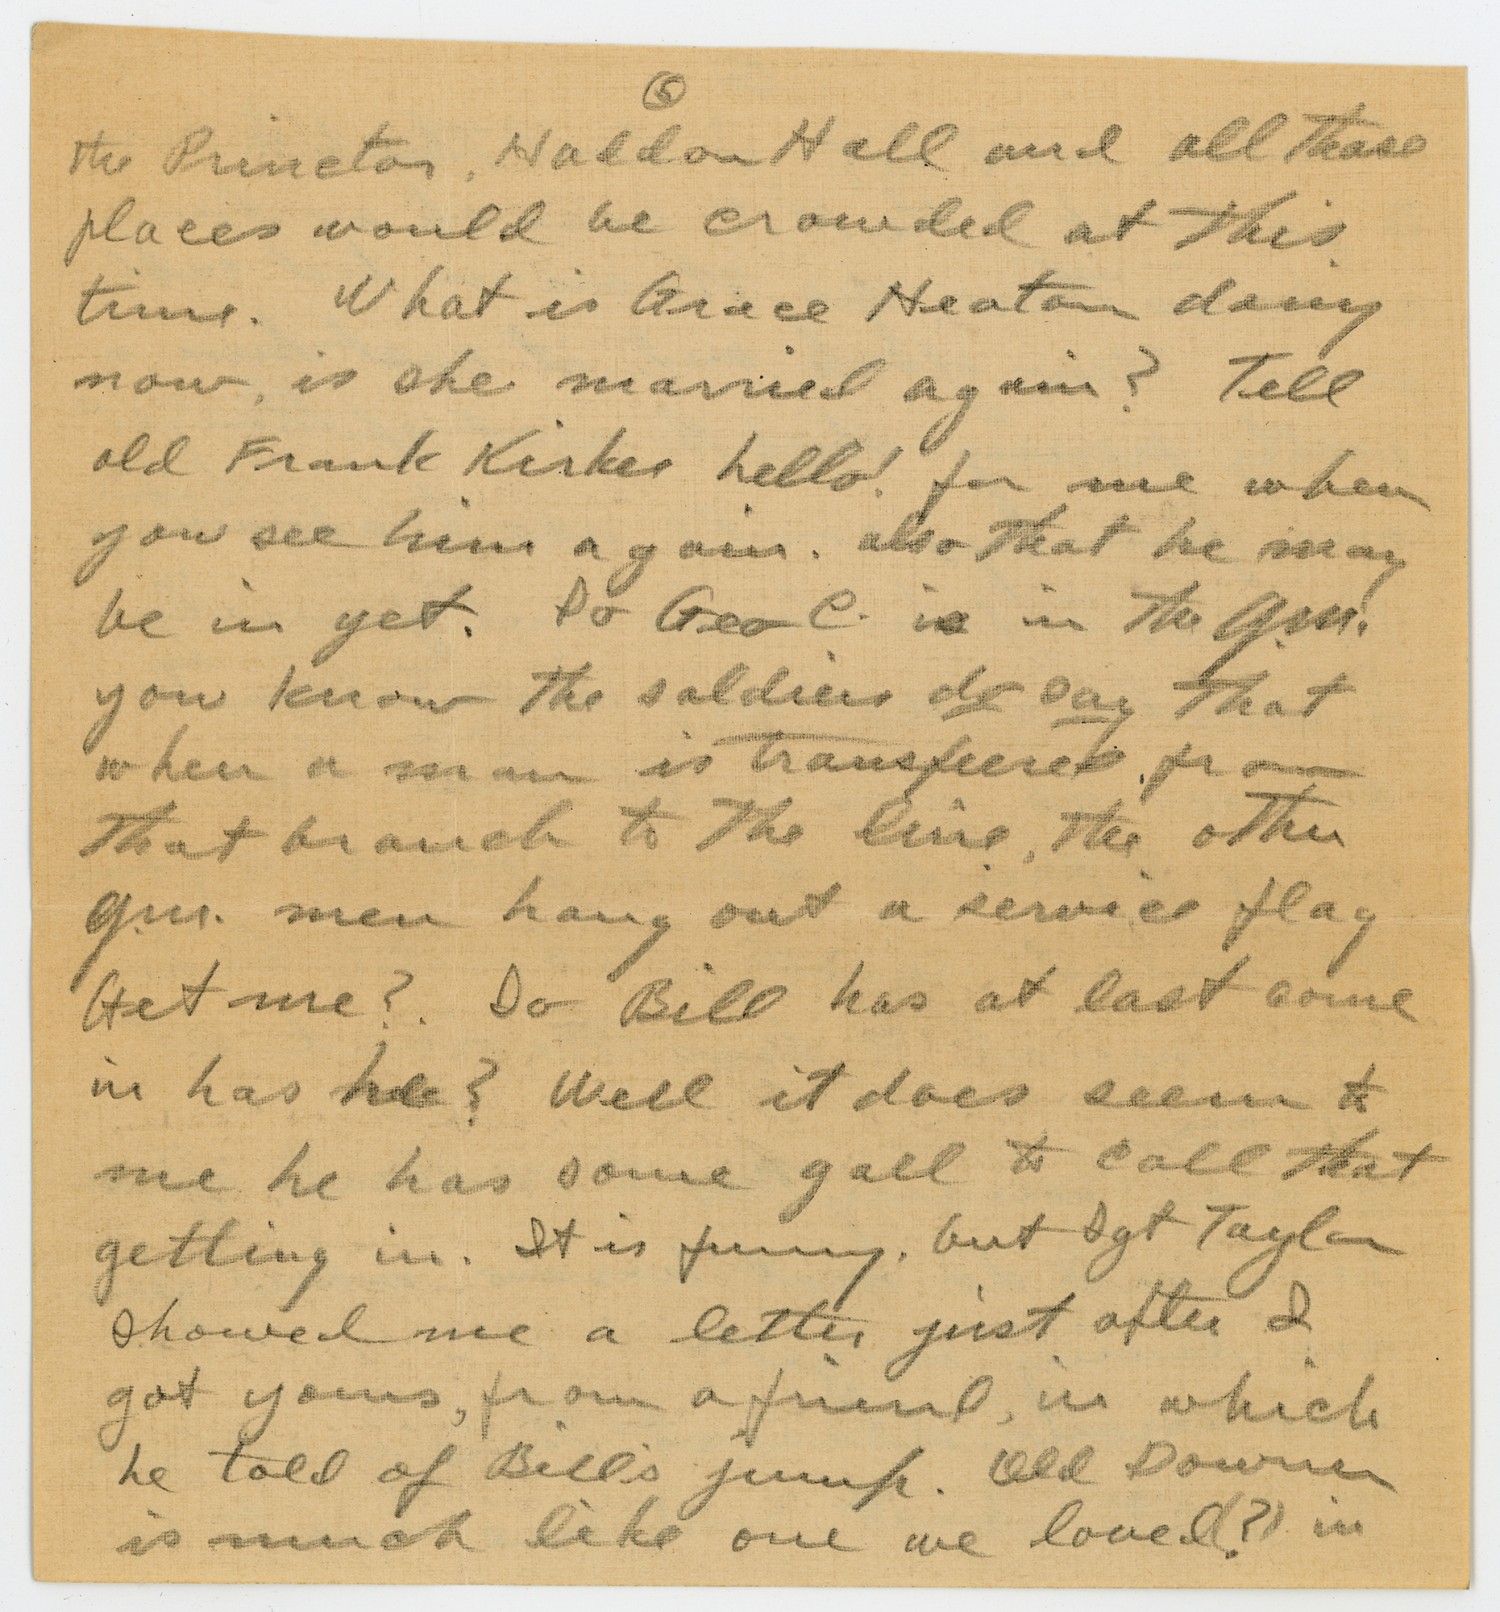 ⑥
the Princton, Haddon Hall and all those
places would be crowded at this
time. What is Grace Heaton doing
now, is she married again? Tell
old Frank Kirkes hello! for me when
you see him again. also that he may
be in yet. So Geo C. is in the Q.M.
you know the soldiers do say that
when a man is transfeered from
that branch to the line, the other
Q.M. men hang out a service flag
Get me?. So Bill has at last come
in has he? Well it does seem to
me he has some gall to call that
getting in. It is funny, but Sgt Taylor
showed me a letter just after I
got yours, from a friend, in which
he told of Bill's jump. Old Downer
is much like one we loved(?) in